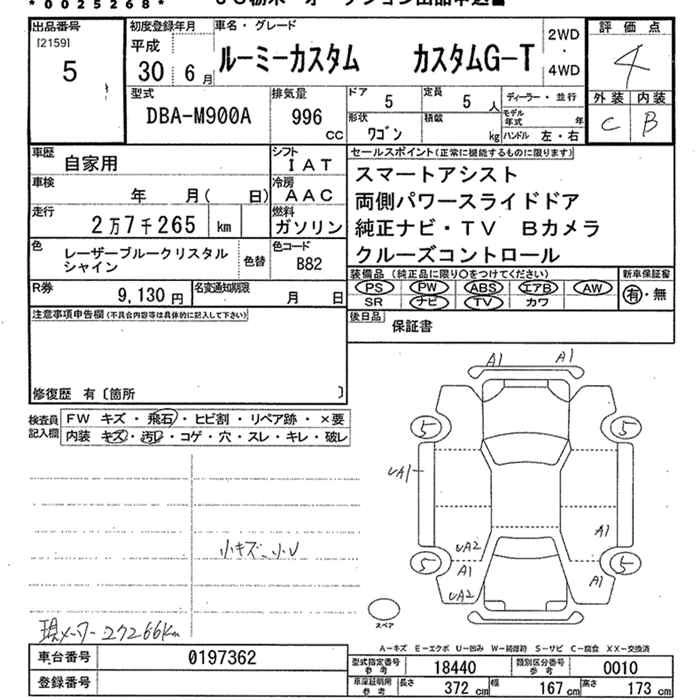 *0025268*
出品番号
[2159]
5
初度登録年月
平成
30年6月
車名・グレード
ルーミーカスタム カスタムG-T
2WD
・
4WD
評価点
4
外装 内装
C B
型式
DBA-M900A
排気量
996
CC
ドア
5
定員
5人
形状
ワゴン
積載
kg
ディーラー・並行
モデル年式 年
ハンドル 左・右
車歴
自家用
シフト
IAT
車検
年 月( 日)
冷房
AAC
走行
2万7千265 km
燃料
ガソリン
色
レーザーブルークリスタル
シャイン
色替
色コード
B82
R券
9,130円
名変通知期限
月 日
セールスポイント(正常に機能するものに限ります)
スマートアシスト
両側パワースライドドア
純正ナビ・TV Bカメラ
クルーズコントロール
装備品(純正品に限り○をつけてください)
PS PW ABS エアB AW
SR ナビ TV カワ
新車保証書
有・無
後日品
保証書
注意事項申告欄(不具合内容等は具体的に記入して下さい)
修復歴 有〔箇所 〕
検査員
記入欄
FW キズ・飛石・ヒビ割・リペア跡・×要
内装 キズ・汚レ・コゲ・穴・スレ・キレ・破レ
小キズ、小U
現メーター27266km
A1 A1
5 5
UA1
A1
UA2
5 A1 A1 5
UA2
スペア
A-キズ E-エクボ U-凹み W-補修跡 S-サビ C-腐食 XX-交換済
車台番号
0197362
登録番号
型式指定番号
参考
18440
類別区分番号
参考
0010
車庫証明用
参考
長さ 372cm 幅 167cm 高さ 173cm